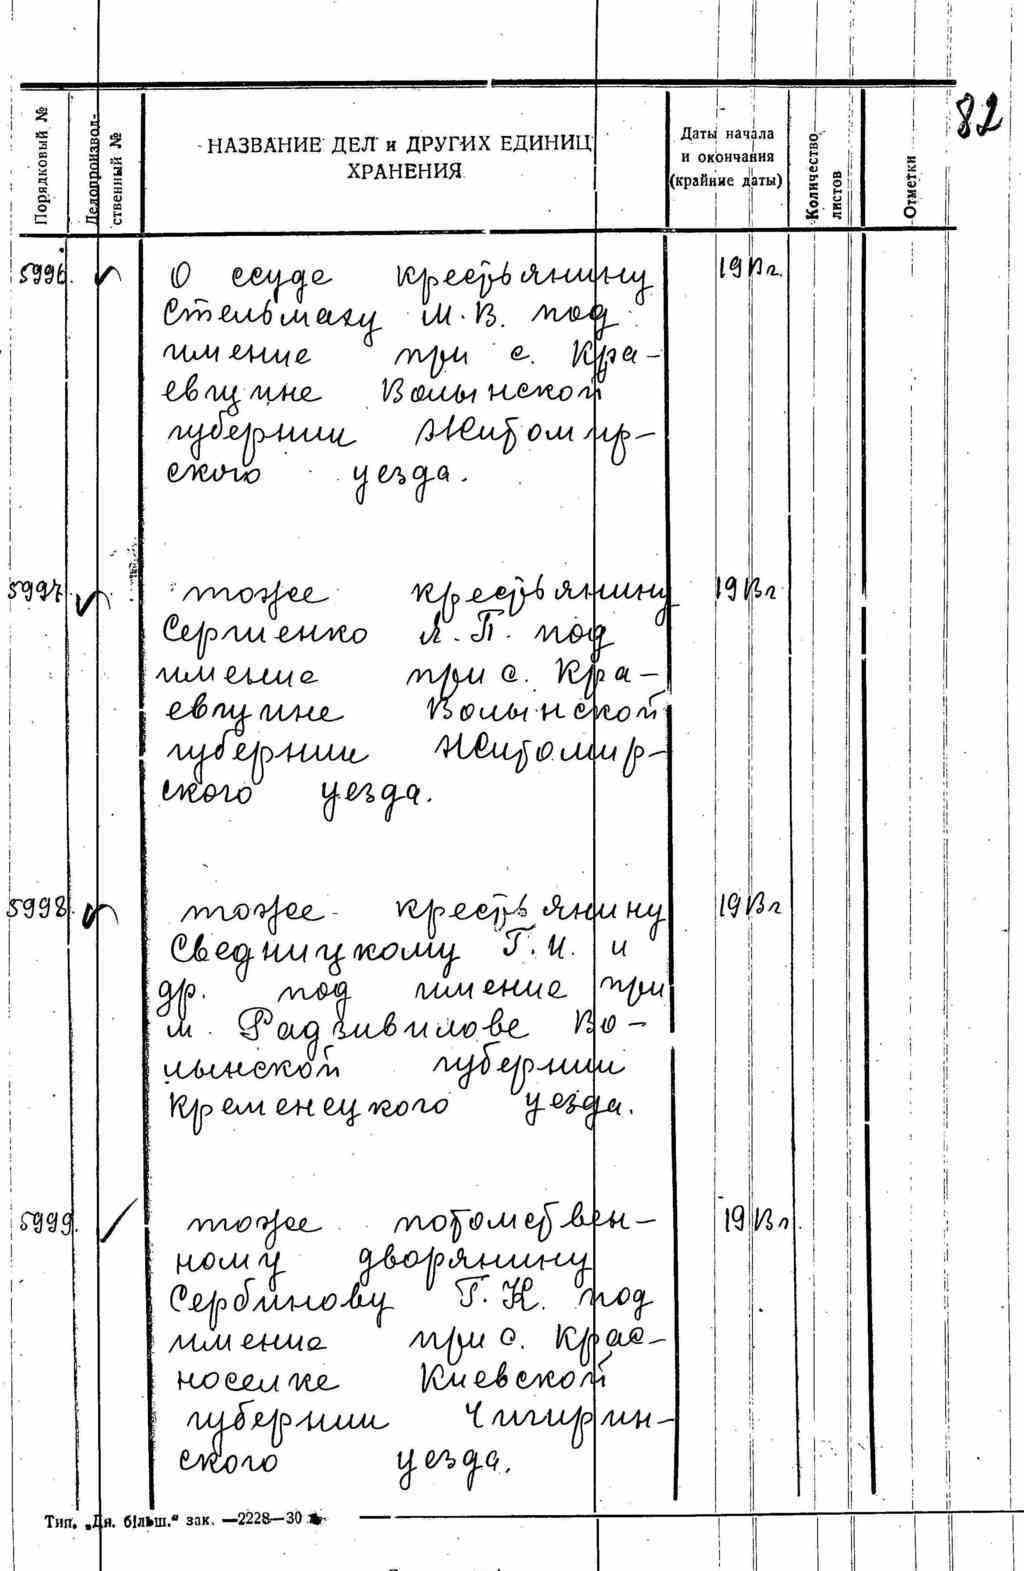 82
Порядковый №
Делопроизвод-
ственный №
НАЗВАНИЕ ДЕЛ и ДРУГИХ ЕДИНИЦ
ХРАНЕНИЯ
Даты начала
и окончания
(крайние даты)
Количество
листов
Отметки
5996. О ссуде крестьянину 1913 г.
Стельмаху М. В. под
имение при с. Кра-
евщине Волынской
губернии Житомир-
ского уезда.
5997. тоже крестьянину 1913 г
Сергиенко А. П. под
имение при с. Кра-
евщине Волынской
губернии Житомир-
ского уезда.
5998. тоже крестьянину 1913 г
Сведницкому Г. И. и
др. под имение при
м. Радзивилове Во-
лынской губернии
Кременецкого уезда.
5999. тоже потомствен- 1913 г.
ному дворянину
Сербинову Г. Н. под
имение при с. Крас-
носелке Киевской
губернии Чигирин-
ского уезда.
Тип. „Дн. більш.“ зак. —2228—30